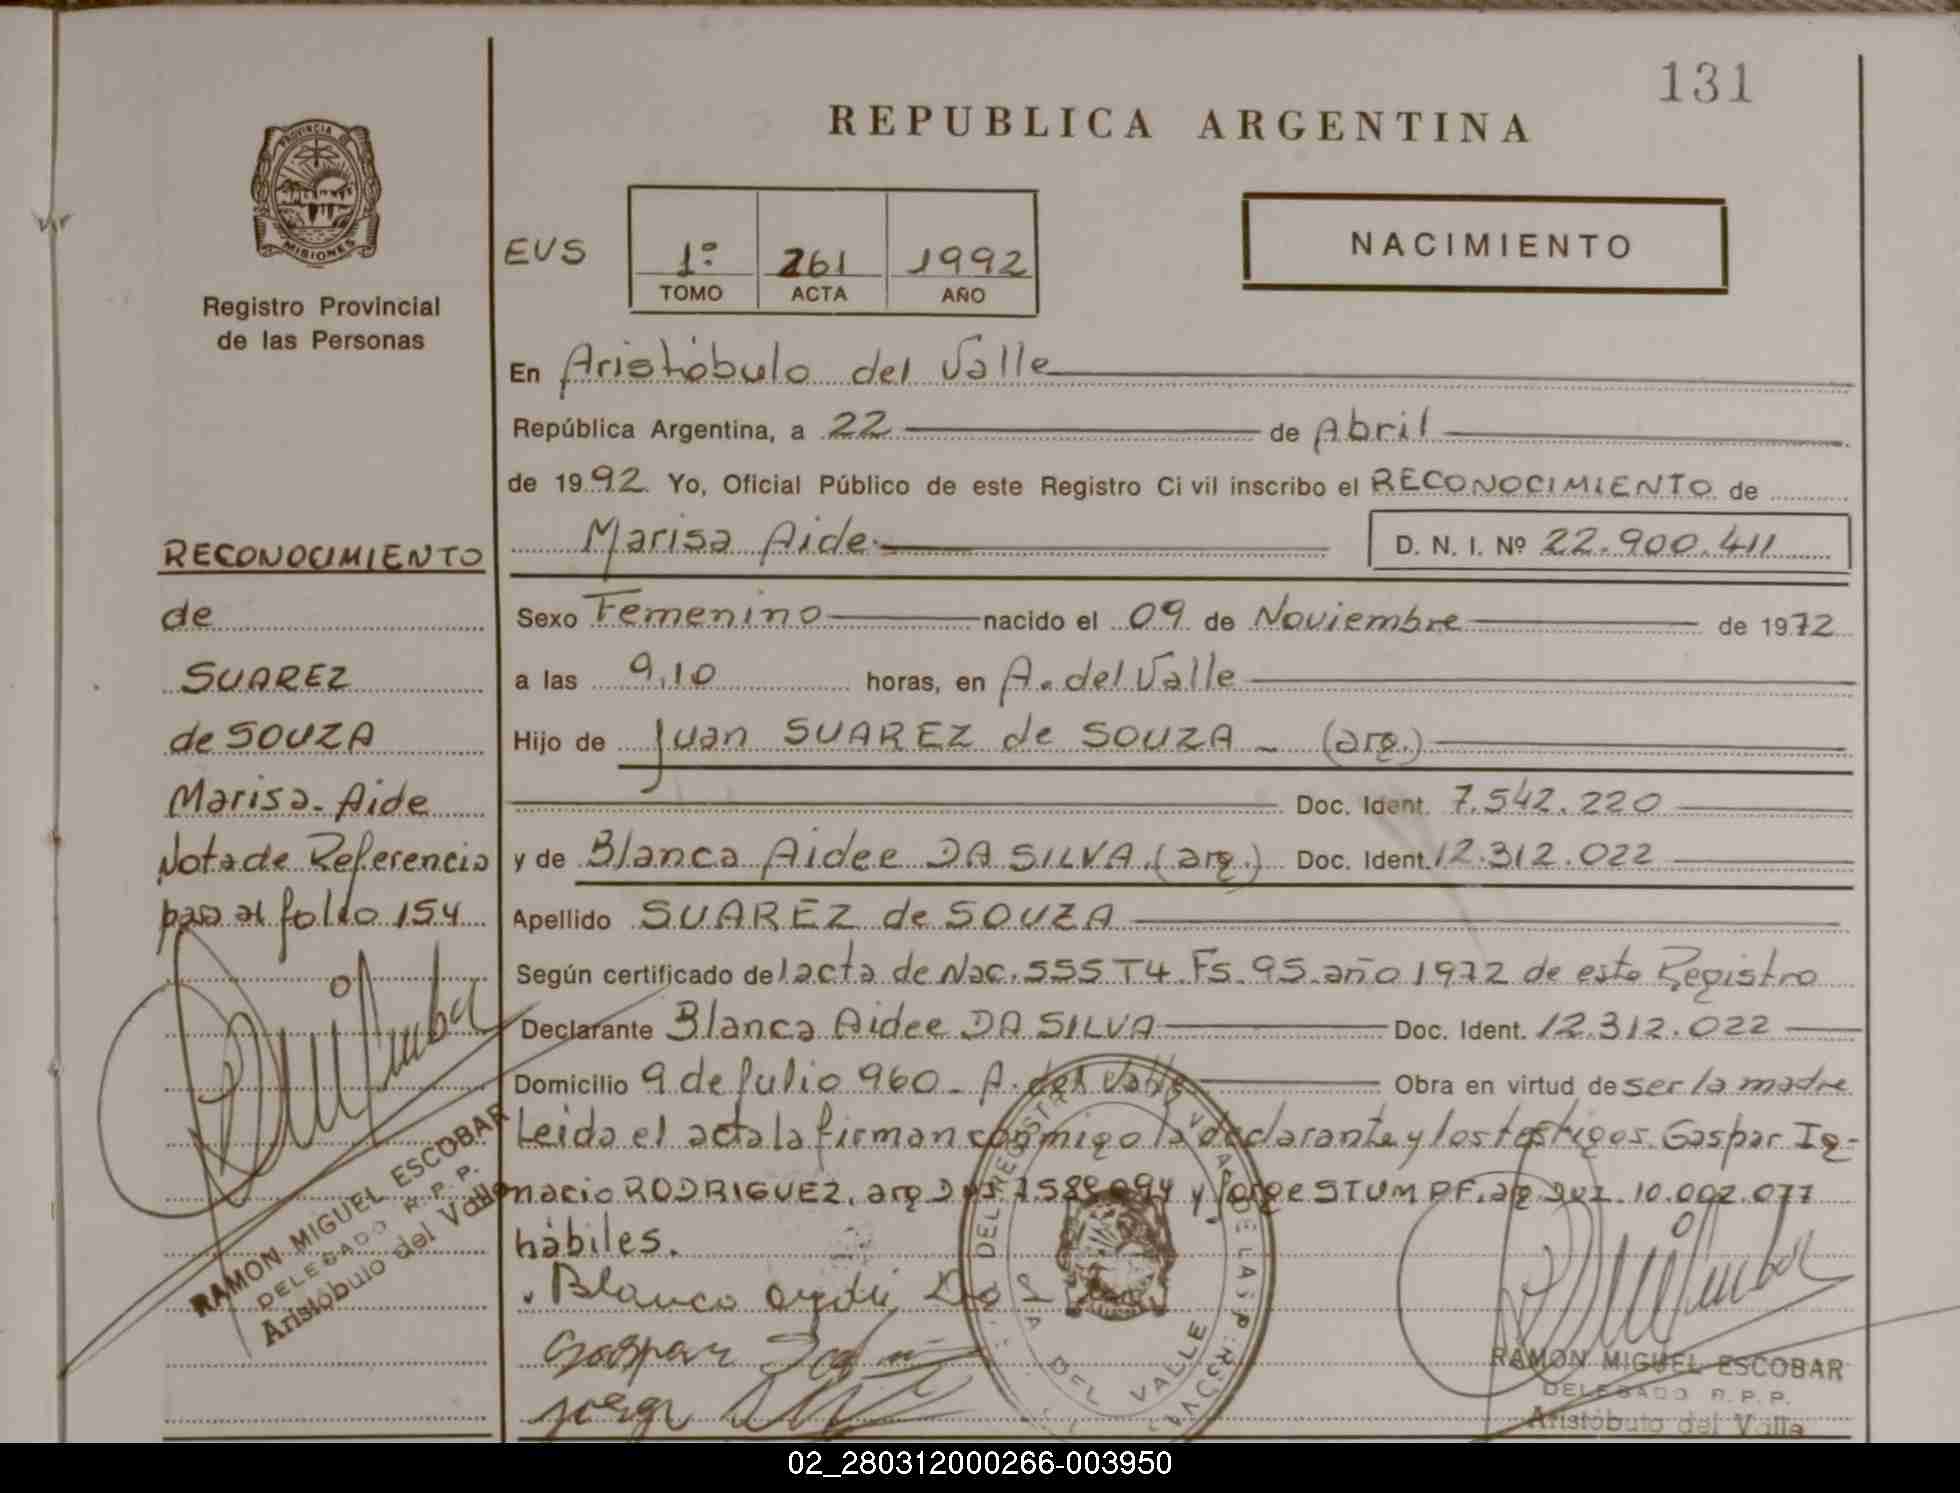 131
REPUBLICA ARGENTINA
PROVINCIA DE
MISIONES
Registro Provincial
de las Personas
EVS
1º 261 1992
TOMO ACTA AÑO
NACIMIENTO
En Aristóbulo del Valle
República Argentina, a 22 de Abril
de 1992. Yo, Oficial Público de este Registro Civil inscribo el RECONOCIMIENTO de
Marisa Aide D. N. I. Nº 22.900.411
Sexo Femenino nacido el 09 de Noviembre de 1972
a las 9,10 horas, en A. del Valle
Hijo de Juan SUAREZ de SOUZA - (arg.)
Doc. Ident. 7.542.220
y de Blanca Aidee DA SILVA (arg.) Doc. Ident. 12.312.022
Apellido SUAREZ de SOUZA
Según certificado del acta de Nac. 555 T4 Fs. 95 año 1972 de este Registro
Declarante Blanca Aidee DA SILVA Doc. Ident. 12.312.022
Domicilio 9 de Julio 960 - A. del Valle Obra en virtud de ser la madre
Leida el acta la firman conmigo la declarante y los testigos Gaspar Ig-
nacio RODRIGUEZ, arg y Jorge STUMPF, arg 10.002.077
hábiles.
Gaspar
Jorge
RECONOCIMIENTO
de
SUAREZ
de SOUZA
Marisa Aide
Nota de Referencia
pasa al folio 154
RAMON MIGUEL ESCOBAR
DELEGADO R. P. P.
Aristóbulo del Valle
DEL VALLE
RAMON MIGUEL ESCOBAR
DELEGADO R. P. P.
Aristóbulo del Valle
02_280312000266-003950